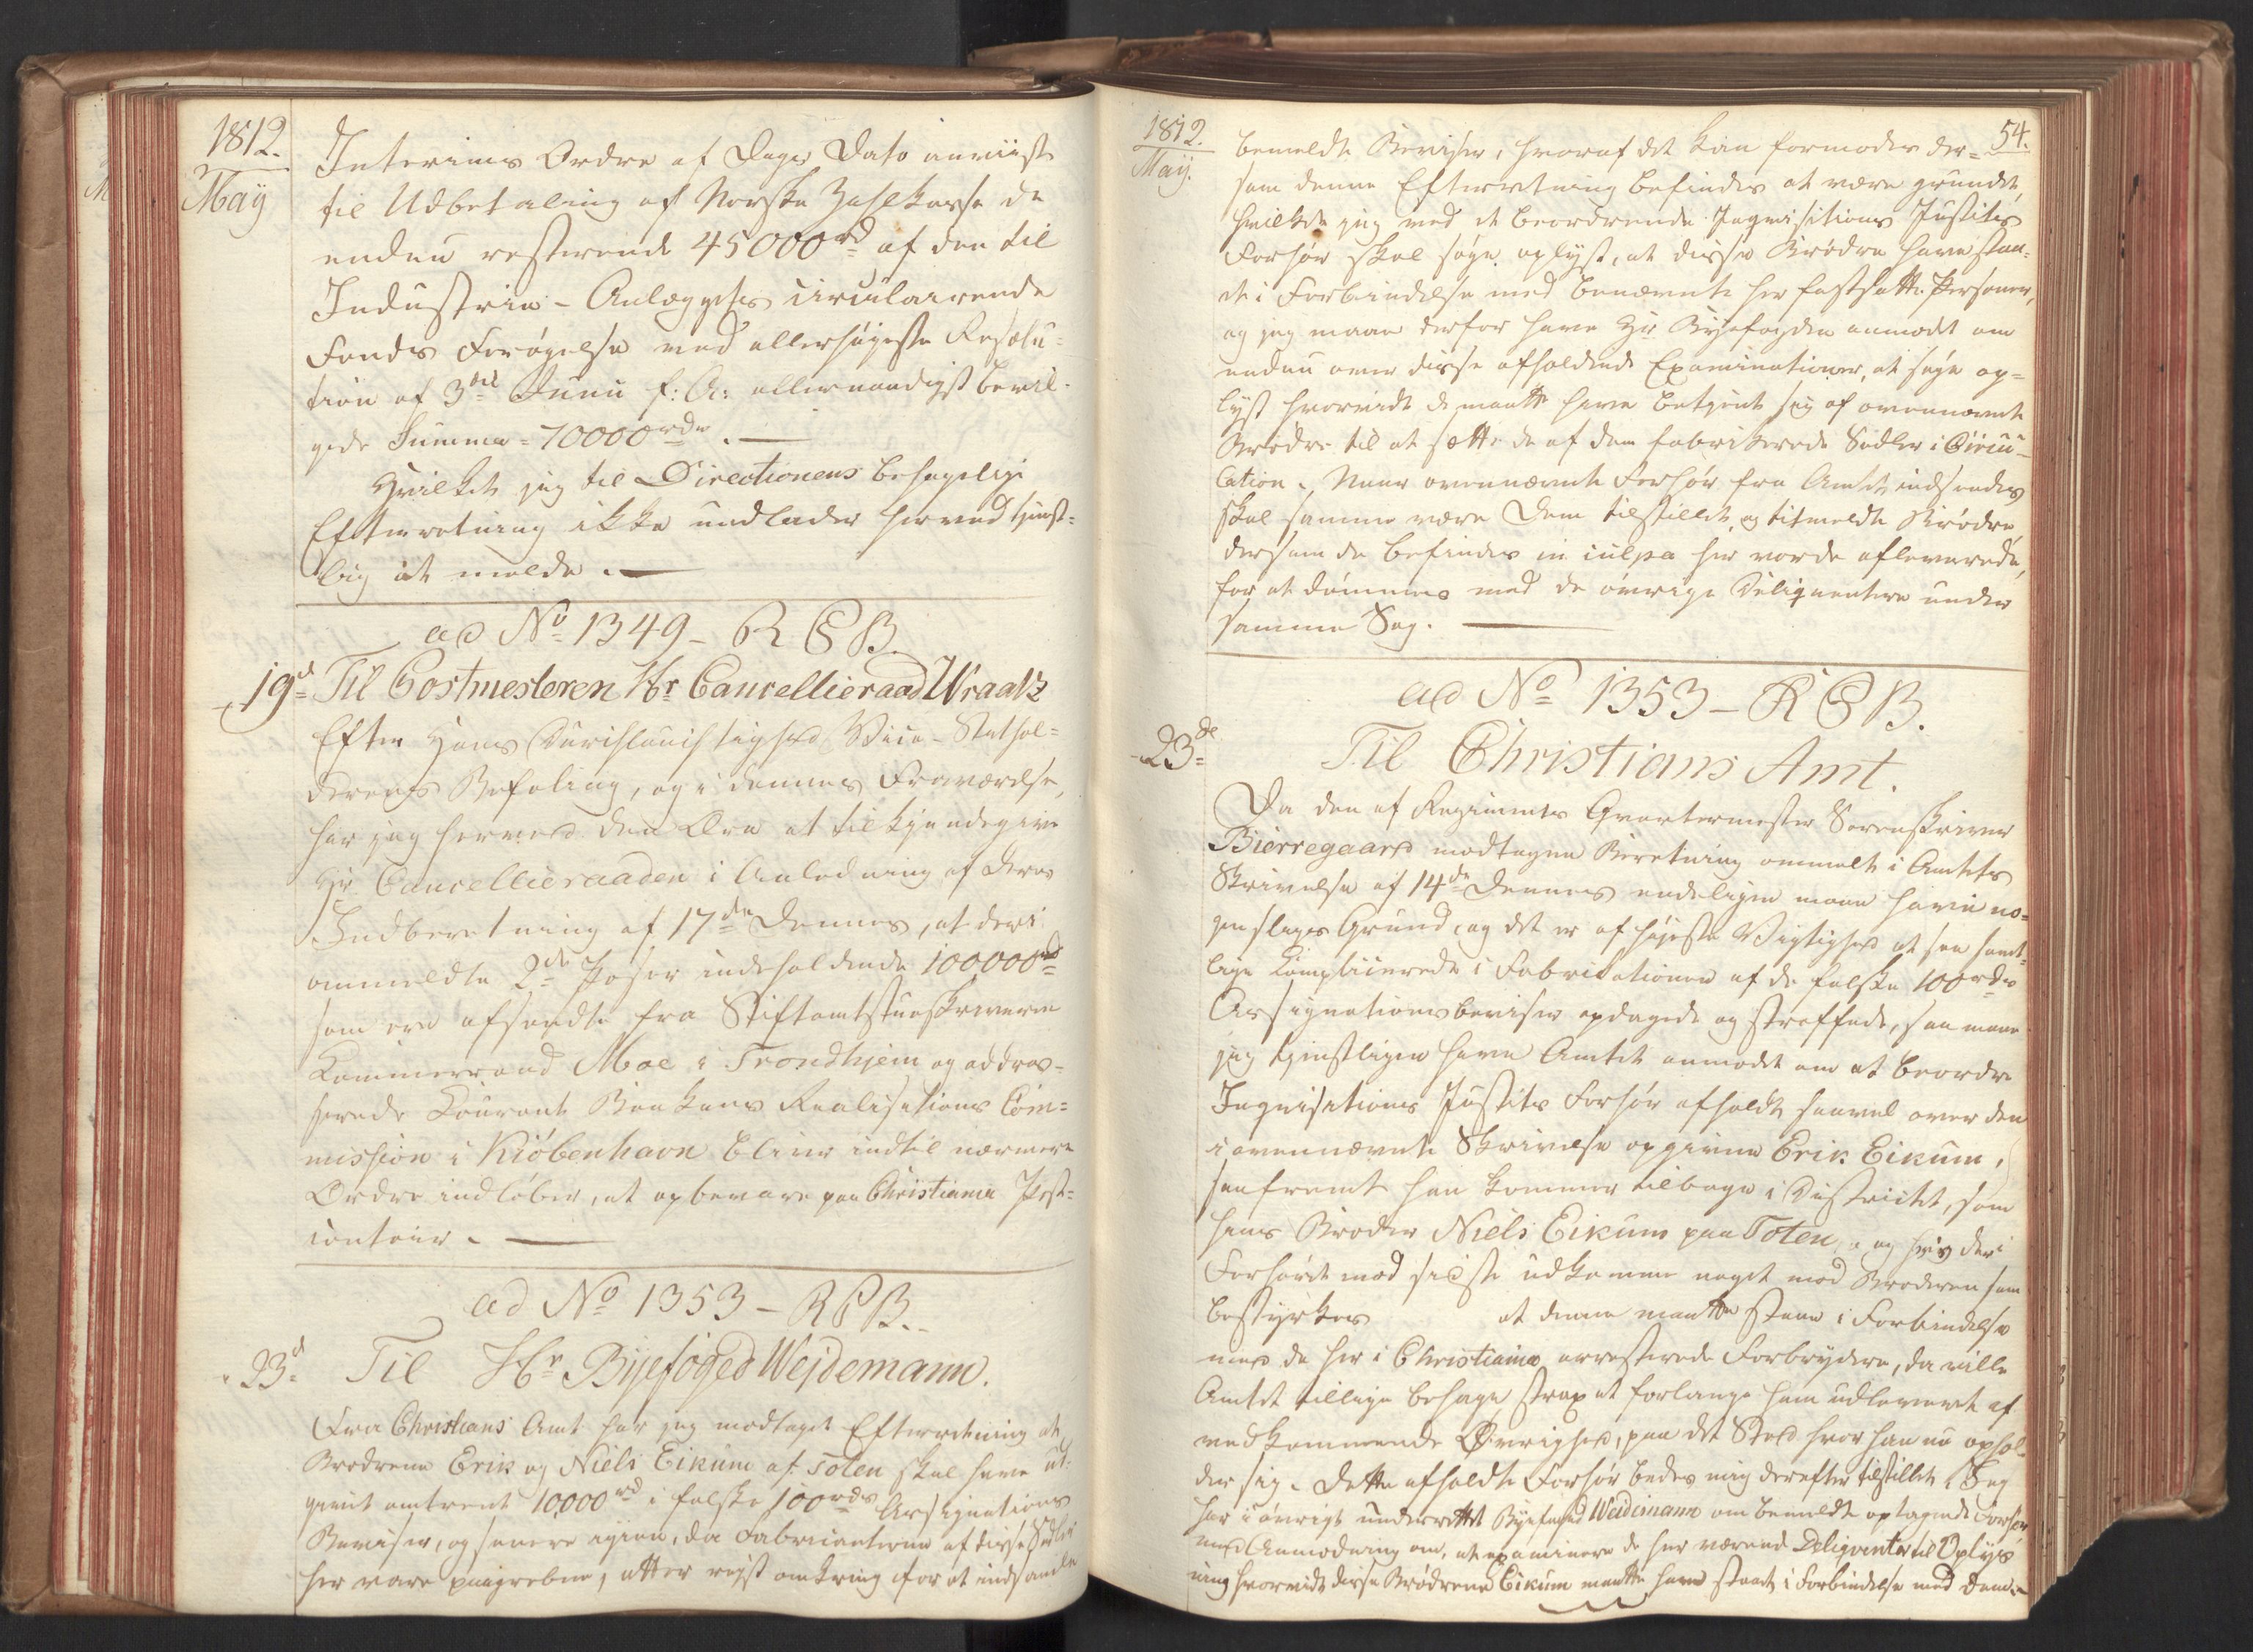 1812.
May
Interims Ordre af Dags Dato anviist
til Udbetaling af Norske Zahlkasse de
endnu resterende 45000 rd af den til
Industrie-Anlæggets circulairende
Fonds Forøgelse ved allerhøyeste Resolu-
tion af 3die Junii f: A: allernaadigst bevil-
gede Summa = 70000 rdr.
Hvilket jeg til Directionens behagelige
Efterretning ikke undlader herved tjenst-
lig at melde.
ad No 1349 - R C B.
19d Til Postmesteren Hr Cancellieraad Wraatz
Efter Hans Durchlauchtighed Vice-Stathol-
derens Befaling, og i dennes Fraværelse,
har jeg herved den Ære at tilkjendegive
Hr Cancellieraaden i Anledning af Deres
Indberetning af 17de dennes, at de i
ommeldte 2de Poser indeholdende 100,000 rd
som ere afsendte fra Stiftamtstueskriveren
Kammerraad Moe i Trondhjem og addres-
serede Courant Bankens Realisations Com-
mission i Kiöbenhavn bliver indtil nærmere
Ordre indløber, at opbevare paa Christiania Post-
contoir.
ad No 1353 - R C B.
23d Til Hr Byefoged Weidemann.
Fra Christians Amt har jeg modtaget Efterretning at
Brødrene Erik og Niels Eikum af Toten skal have ud-
givet omtrent 10,000 rd i falske 100 rds Assignations
Beviser, og senere igien, da Fabricanterne af disse Sedler
her vare paagrebne, atter reist omkring for at indsamle
1812.
May.
54.
bemeldte Beviser, hvoraf det kan formodes der-
som denne Efterretning befindes at være grundet,
hvilket jeg ved et beordrende Inqvisitions Justits
Forhør skal søge oplyst, at disse Brødre have staa-
et i Forbindelse med benævnte her fastsatte Personer,
og jeg maae derfor have Hr Byefogden anmodet om
endnu over disse afholdende Examinationer, at søge op-
lyst hvorvidt de maatte have betjent sig af ovennævnte
Brødre til at sætte de af dem fabrikerede Sedler i Circu-
lation. Naar ovennævnte Forhør fra Amtet indsendes
skal samme være Dem tilstillet, og titmeldte Brødre,
dersom de befindes in culpa her vorde afleverede,
for at dömmes med de øvrige Deliqventere under
samme Sag.
ad No 1353 - R C B.
23de
Til Christians Amt.
Da den af Regiments Qvartermester Sorenskriver
Bierregaard modtagne Beretning ommelte i Amtets
Skrivelse af 14de dennes endeligen maae have no-
genslags Grund, og det er af høyeste Vigtighed at see samt-
lige Complicerede i Fabricationen af de falske 100 rdrs
Assignationsbeviser opdagede og straffede, saa maae
jeg tjenstligen have Amtet anmodet om at beordre
Inqvisitions Justits Forhør afholdt saavel over den
i ovennævnte Skrivelse opgivne Erik Eikum,
saafremt han kommer tilbage i Districtet, som
hans Broder Niels Eikum paa Toten, og hvis der i
Forhøret mod sidste udkomme noget mod Broderen som
bestyrker at denne maatte staae i Forbindelse
med de her i Christiania arresterede Forbrydere, da ville
Amtet tillige behage strax at forlange ham udleveret af
vedkommende Øvrighed, paa det Sted hvor han nu ophol-
der sig. Dette afholdte Forhør bedes mig derefter tilstillet. Jeg
har iøvrigt underrettet Byefoged Weidemann om bemeldte optagende Forhör
med Anmodning om, at examinere de her værend Deliqventer til Oplys-
ning hvorvidt disse Brødrene Eikum maatte have staaet i Forbindelse med dem.